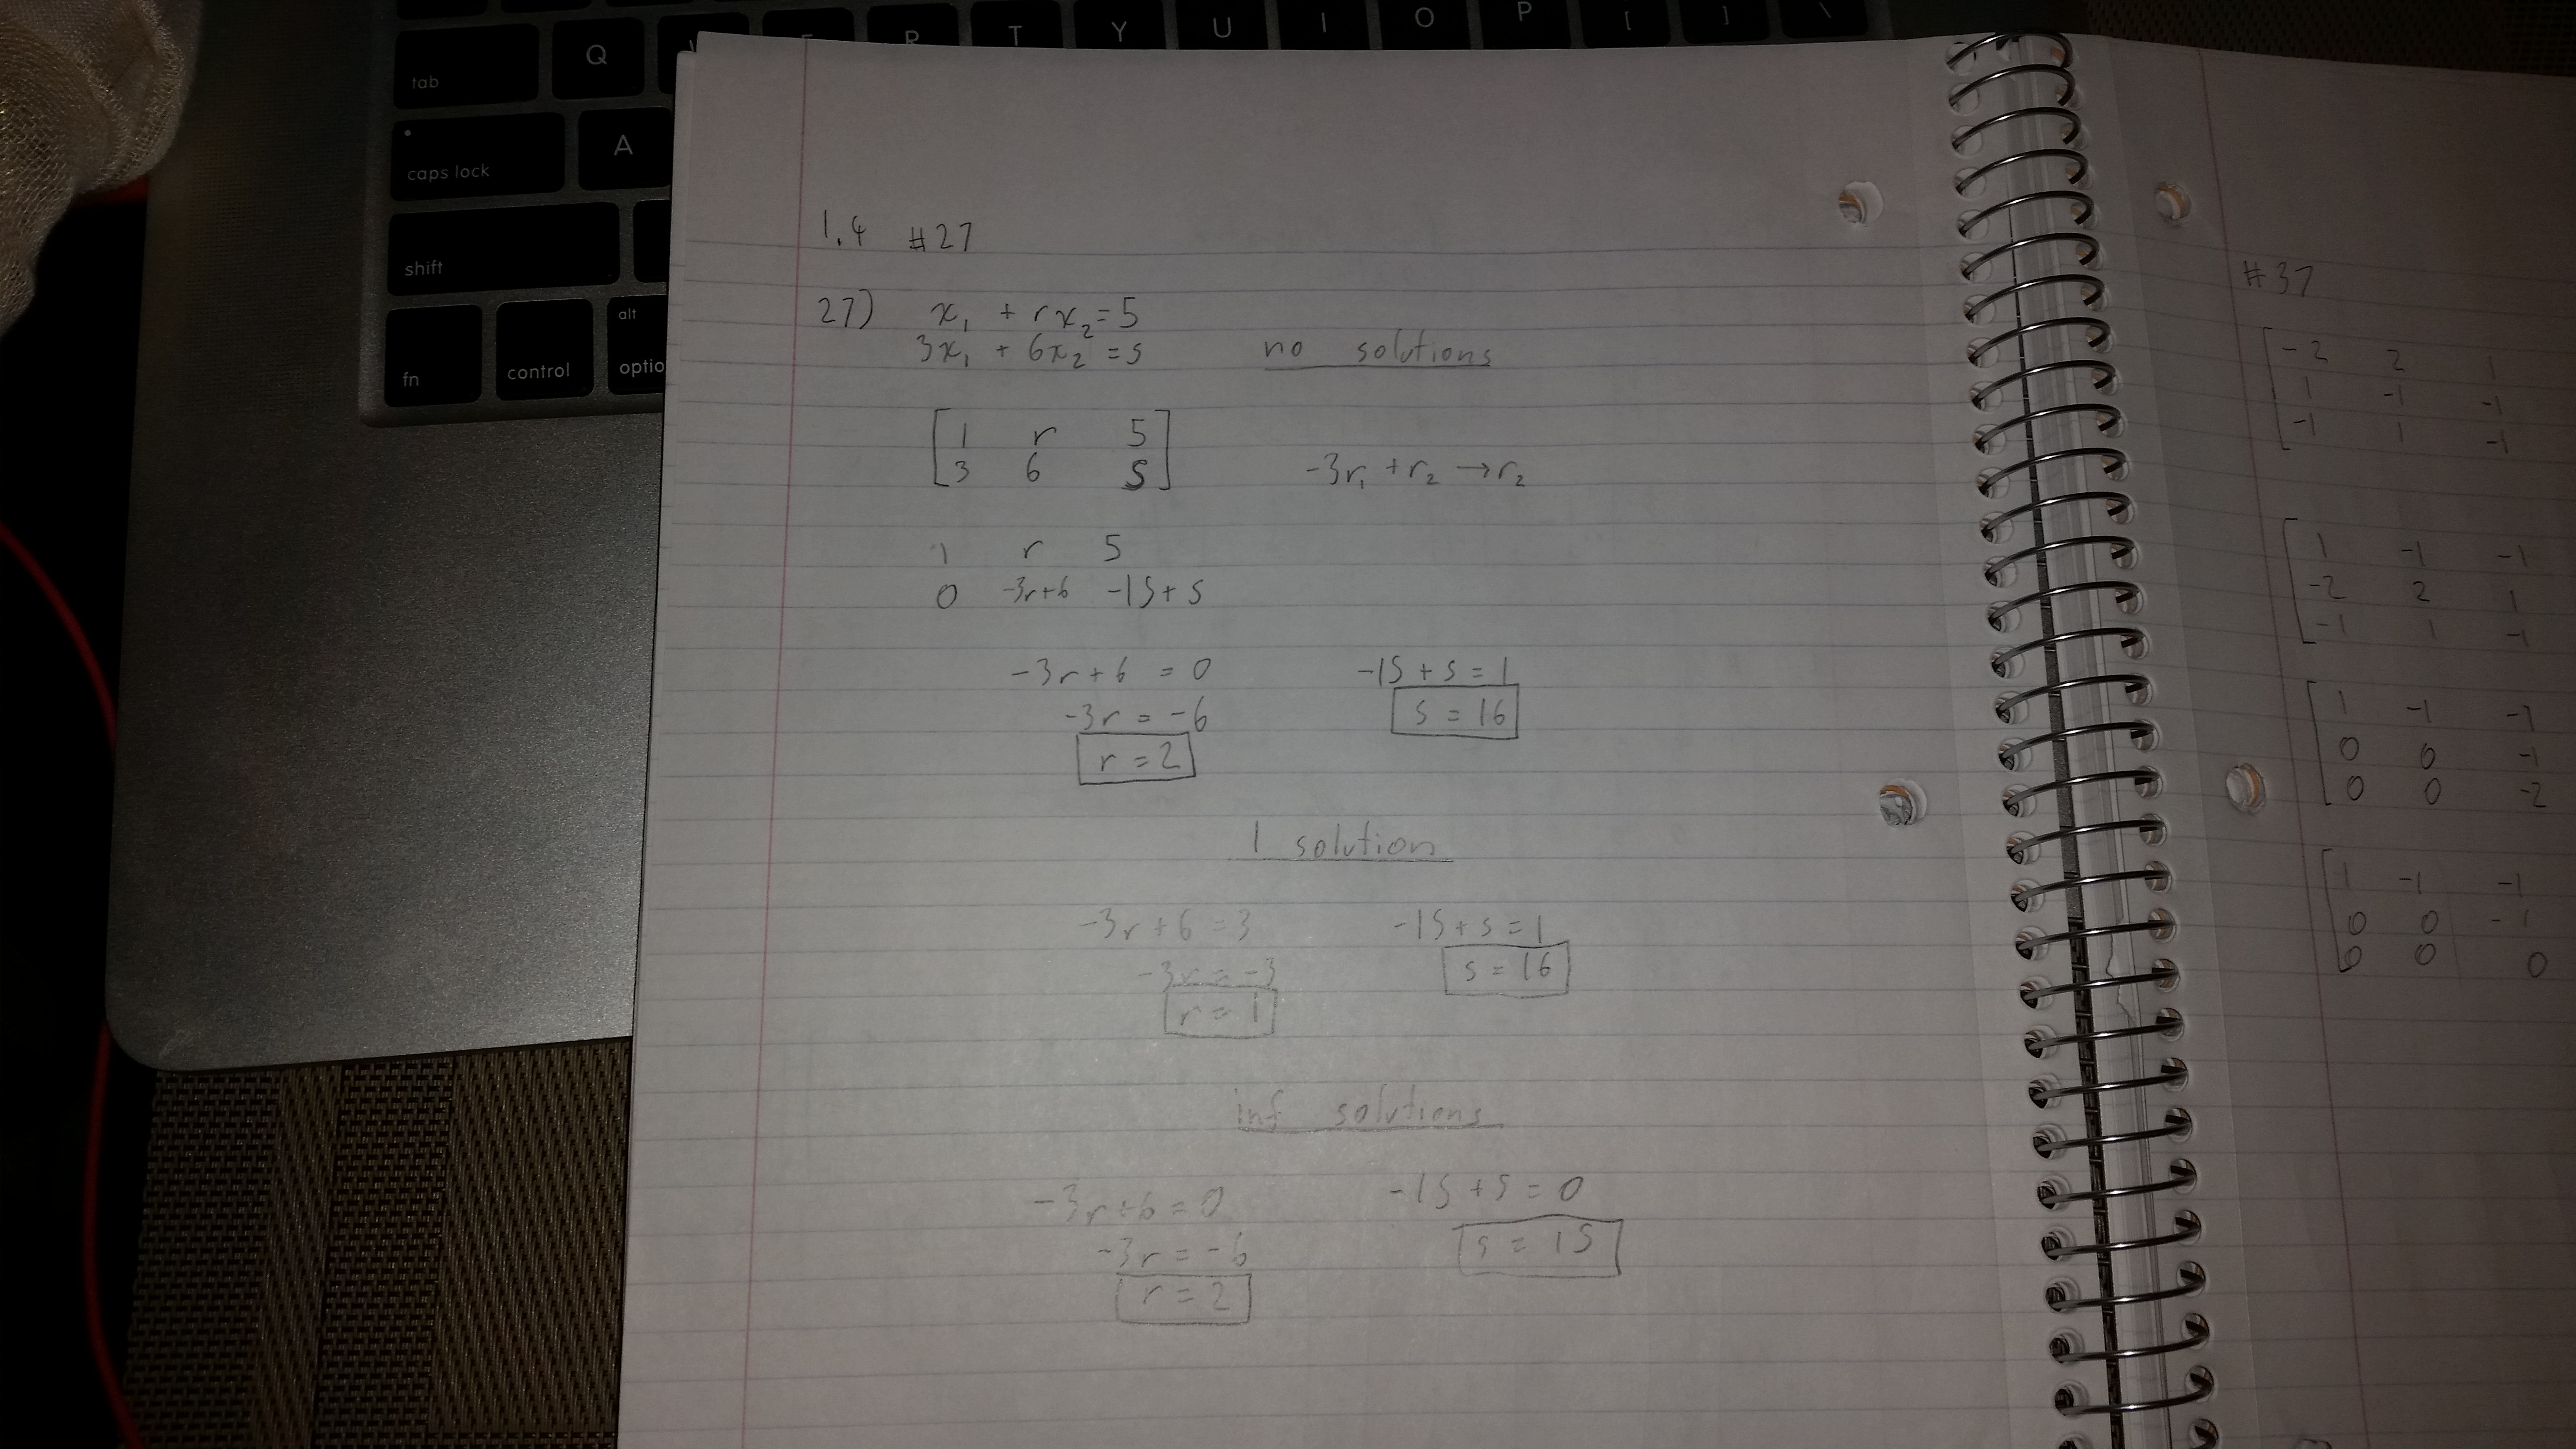 Q R T Y U I O P [ ] \
tab
caps lock A
shift
fn control alt optio
1.4 #27
27) x₁ + rx₂ = 5
3x₁ + 6x₂ = s no solutions
[1 r 5
3 6 s] -3r₁ + r₂ → r₂
1 r 5
0 -3r+6 -15+s
-3r+6 = 0 -15+s=1
-3r = -6 s = 16
r = 2
1 solution
-3r+6=3 -15+s=1
-3r=-3 s = 16
r = 1
inf solutions
-3r+6=0 -15+s=0
-3r = -6 s = 15
r = 2
#37
[-2 2 1
1 -1 -1
-1 1 -1
[1 -1 -1
-2 2 1
-1 1 -1
[1 -1 -1
0 0 -1
0 0 -2
[1 -1 -1
0 0 -1
0 0 0